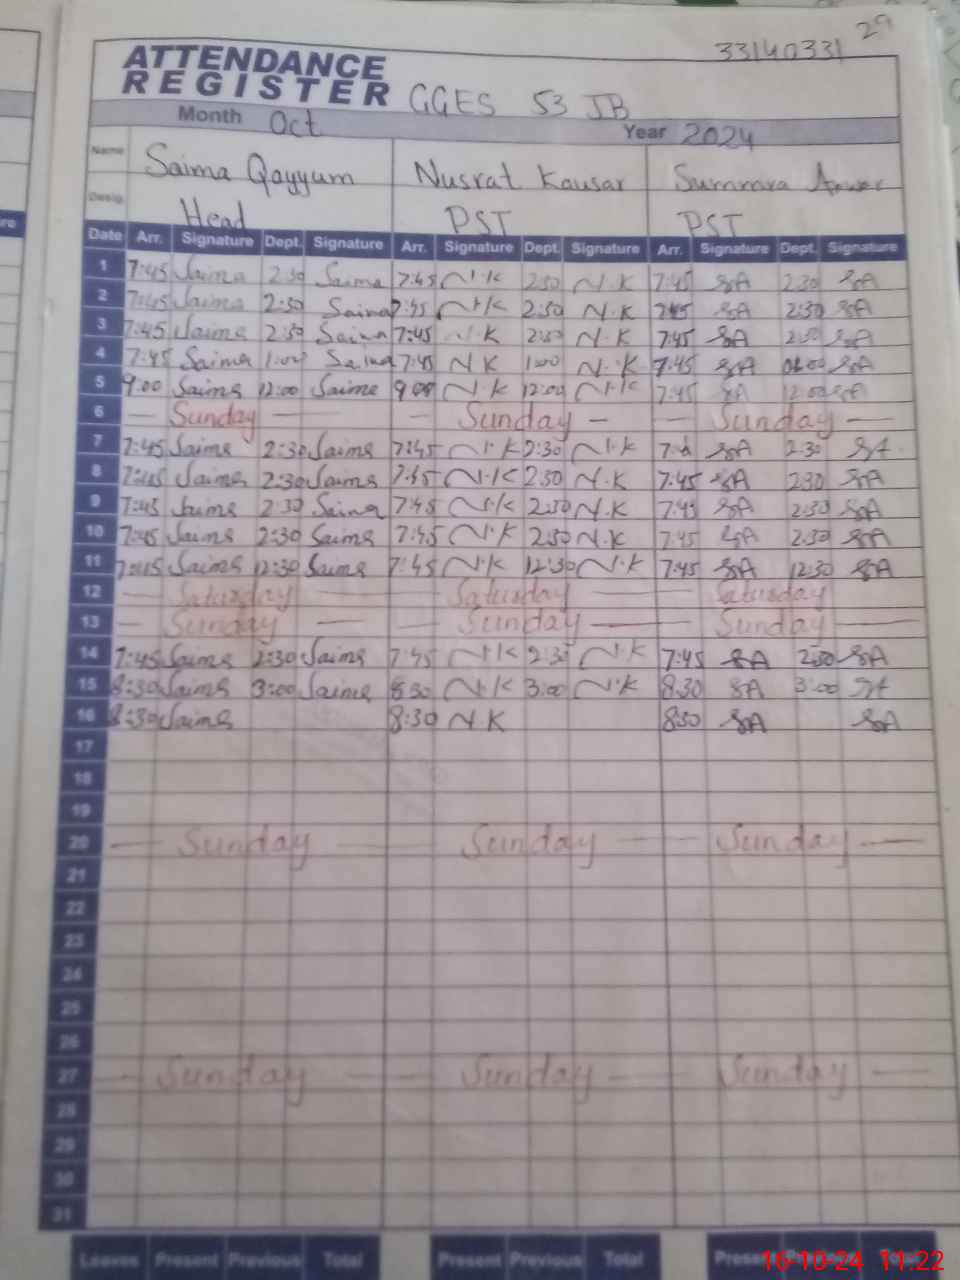 29
33140331
ATTENDANCE
REGISTER GGES 53 JB
Month Oct Year 2024
Name Saima Qayyum Nusrat Kausar Summra Anwer
Desig. Head PST PST
Date Arr. Signature Dept. Signature Arr. Signature Dept. Signature Arr. Signature Dept. Signature
1 7:45 Saima 2:30 Saima 7:45 N.K 2:30 N.K 7:45 SA 2:30 SA
2 7:45 Saima 2:30 Saima 7:45 N.K 2:30 N.K 7:45 SA 2:30 SA
3 7:45 Saima 2:30 Saima 7:45 N.K 2:30 N.K 7:45 SA 2:30 SA
4 7:45 Saima 1:00 Saima 7:45 N K 1:00 N.K 7:45 SA 01:00 SA
5 9:00 Saima 12:00 Saima 9:00 N.K 12:00 N.K 7:45 SA 12:00 SA
6 — Sunday — — Sunday — — Sunday —
7 7:45 Saima 2:30 Saima 7:45 N.K 2:30 N.K SA 2:30 SA
8 7:45 Saima 2:30 Saima 7:45 N.K 2:30 N.K 7:45 SA 2:30 SA
9 7:45 Saima 2:30 Saima 7:45 N.K 2:30 N.K 7:45 SA 2:30 SA
10 7:45 Saima 2:30 Saima 7:45 N.K 2:30 N.K 7:45 SA 2:30 SA
11 7:45 Saima 12:30 Saima 7:45 N.K 12:30 N.K 7:45 SA 12:30 SA
12 — Saturday — — Saturday — — Saturday
13 — Sunday — — Sunday — — Sunday —
14 7:45 Saima 2:30 Saima 7:45 N.K 2:30 N.K 7:45 SA 2:30 SA
15 8:30 Saima 3:00 Saima 8:30 N.K 3:00 N.K 8:30 SA 3:00 SA
16 8:30 Saima 8:30 N.K 8:30 SA SA
17
18
19
20 — Sunday — — Sunday — — Sunday —
21
22
23
24
25
26
27 — Sunday — — Sunday — — Sunday —
28
29
30
31
Leaves Present Previous Total Present Previous Total Present Total
16-10-24 11:22